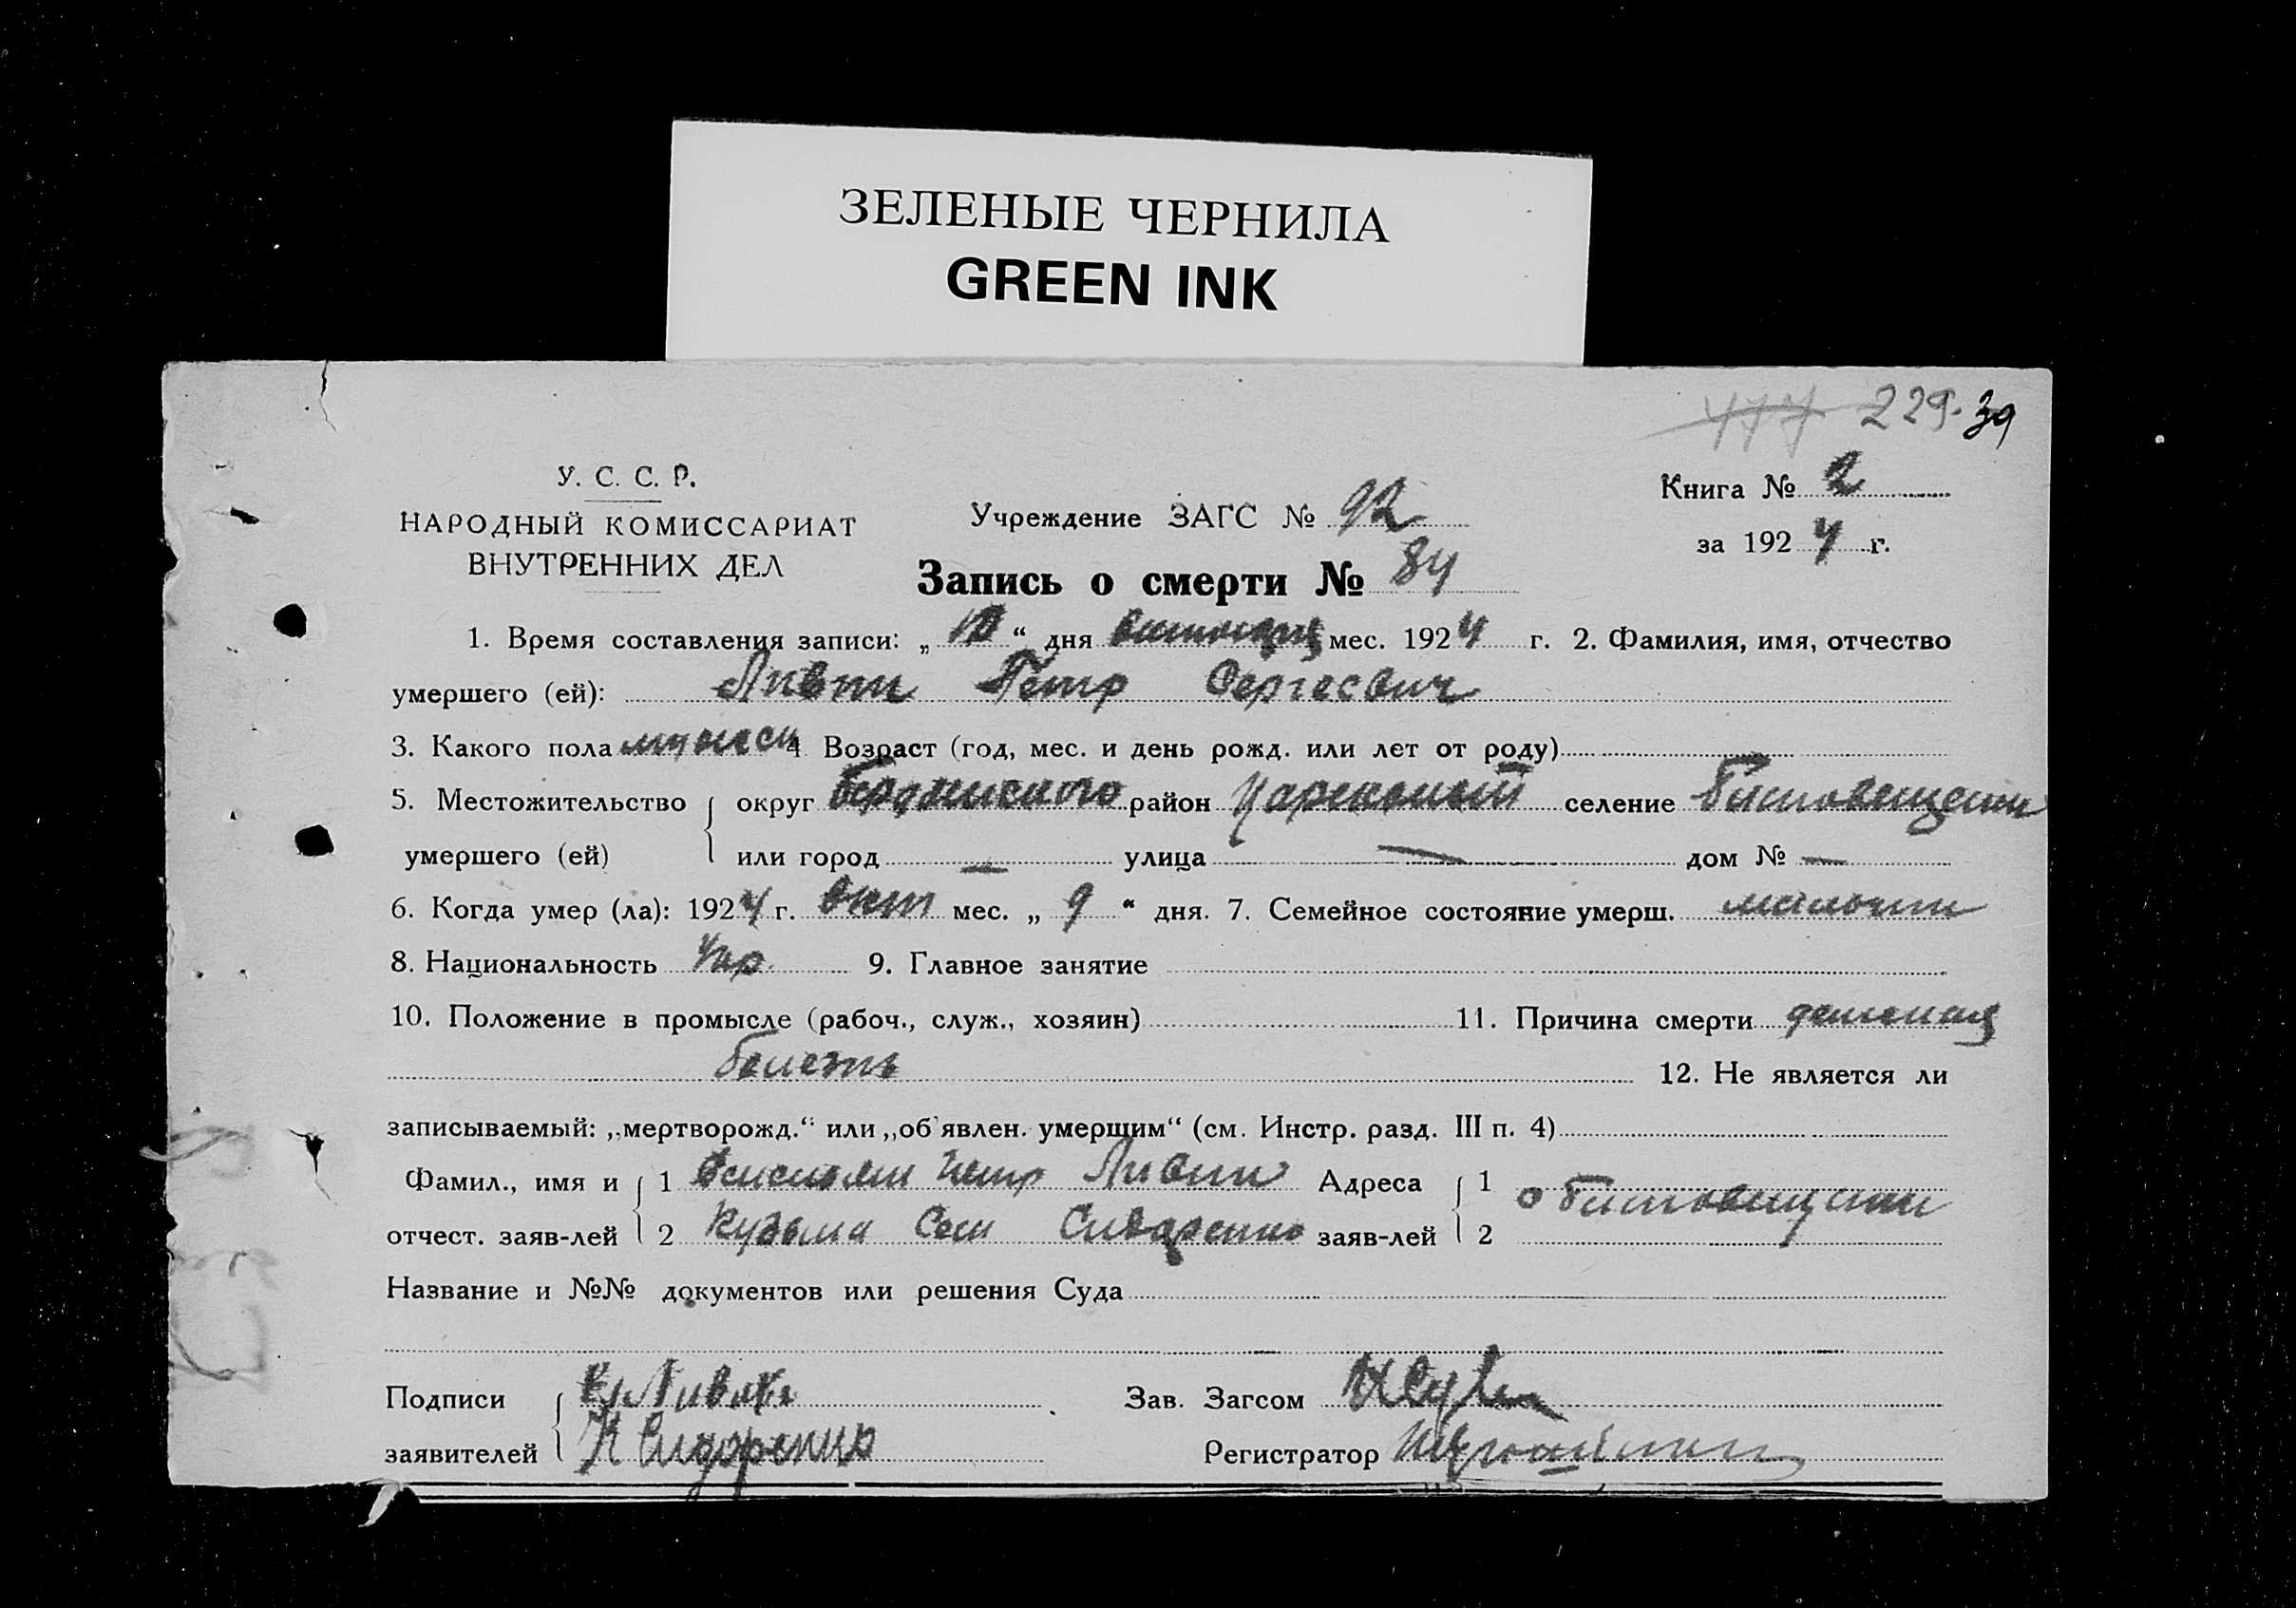 ЗЕЛЕНЫЕ ЧЕРНИЛА
GREEN INK
229. 39
У. С. С. Р.
НАРОДНЫЙ КОМИССАРИАТ
ВНУТРЕННИХ ДЕЛ
Учреждение ЗАГС № 92
Книга № 2
за 1924 г.
Запись о смерти № 84
1. Время составления записи: „10“ дня октября мес. 1924 г. 2. Фамилия, имя, отчество
умершего (ей): Петр Сергеевич
3. Какого пола мужск 4 Возраст (год, мес. и день рожд. или лет от роду)
5. Местожительство округ Бердянского район селение
умершего (ей) или город — улица — дом № —
6. Когда умер (ла): 1924 г. окт мес. „9“ дня. 7. Семейное состояние умерш.
8. Национальность Укр. 9. Главное занятие
10. Положение в промысле (рабоч., служ., хозяин) 11. Причина смерти детская
болезнь 12. Не является ли
записываемый: „мертворожд.“ или „об'явлен. умершим“ (см. Инстр. разд. III п. 4)
Фамил., имя и 1 Петр Адреса 1
отчест. заяв-лей 2 Кузьма Сем Сидоренко заяв-лей 2
Название и №№ документов или решения Суда
Подписи Зав. Загсом
заявителей К Сидоренко Регистратор